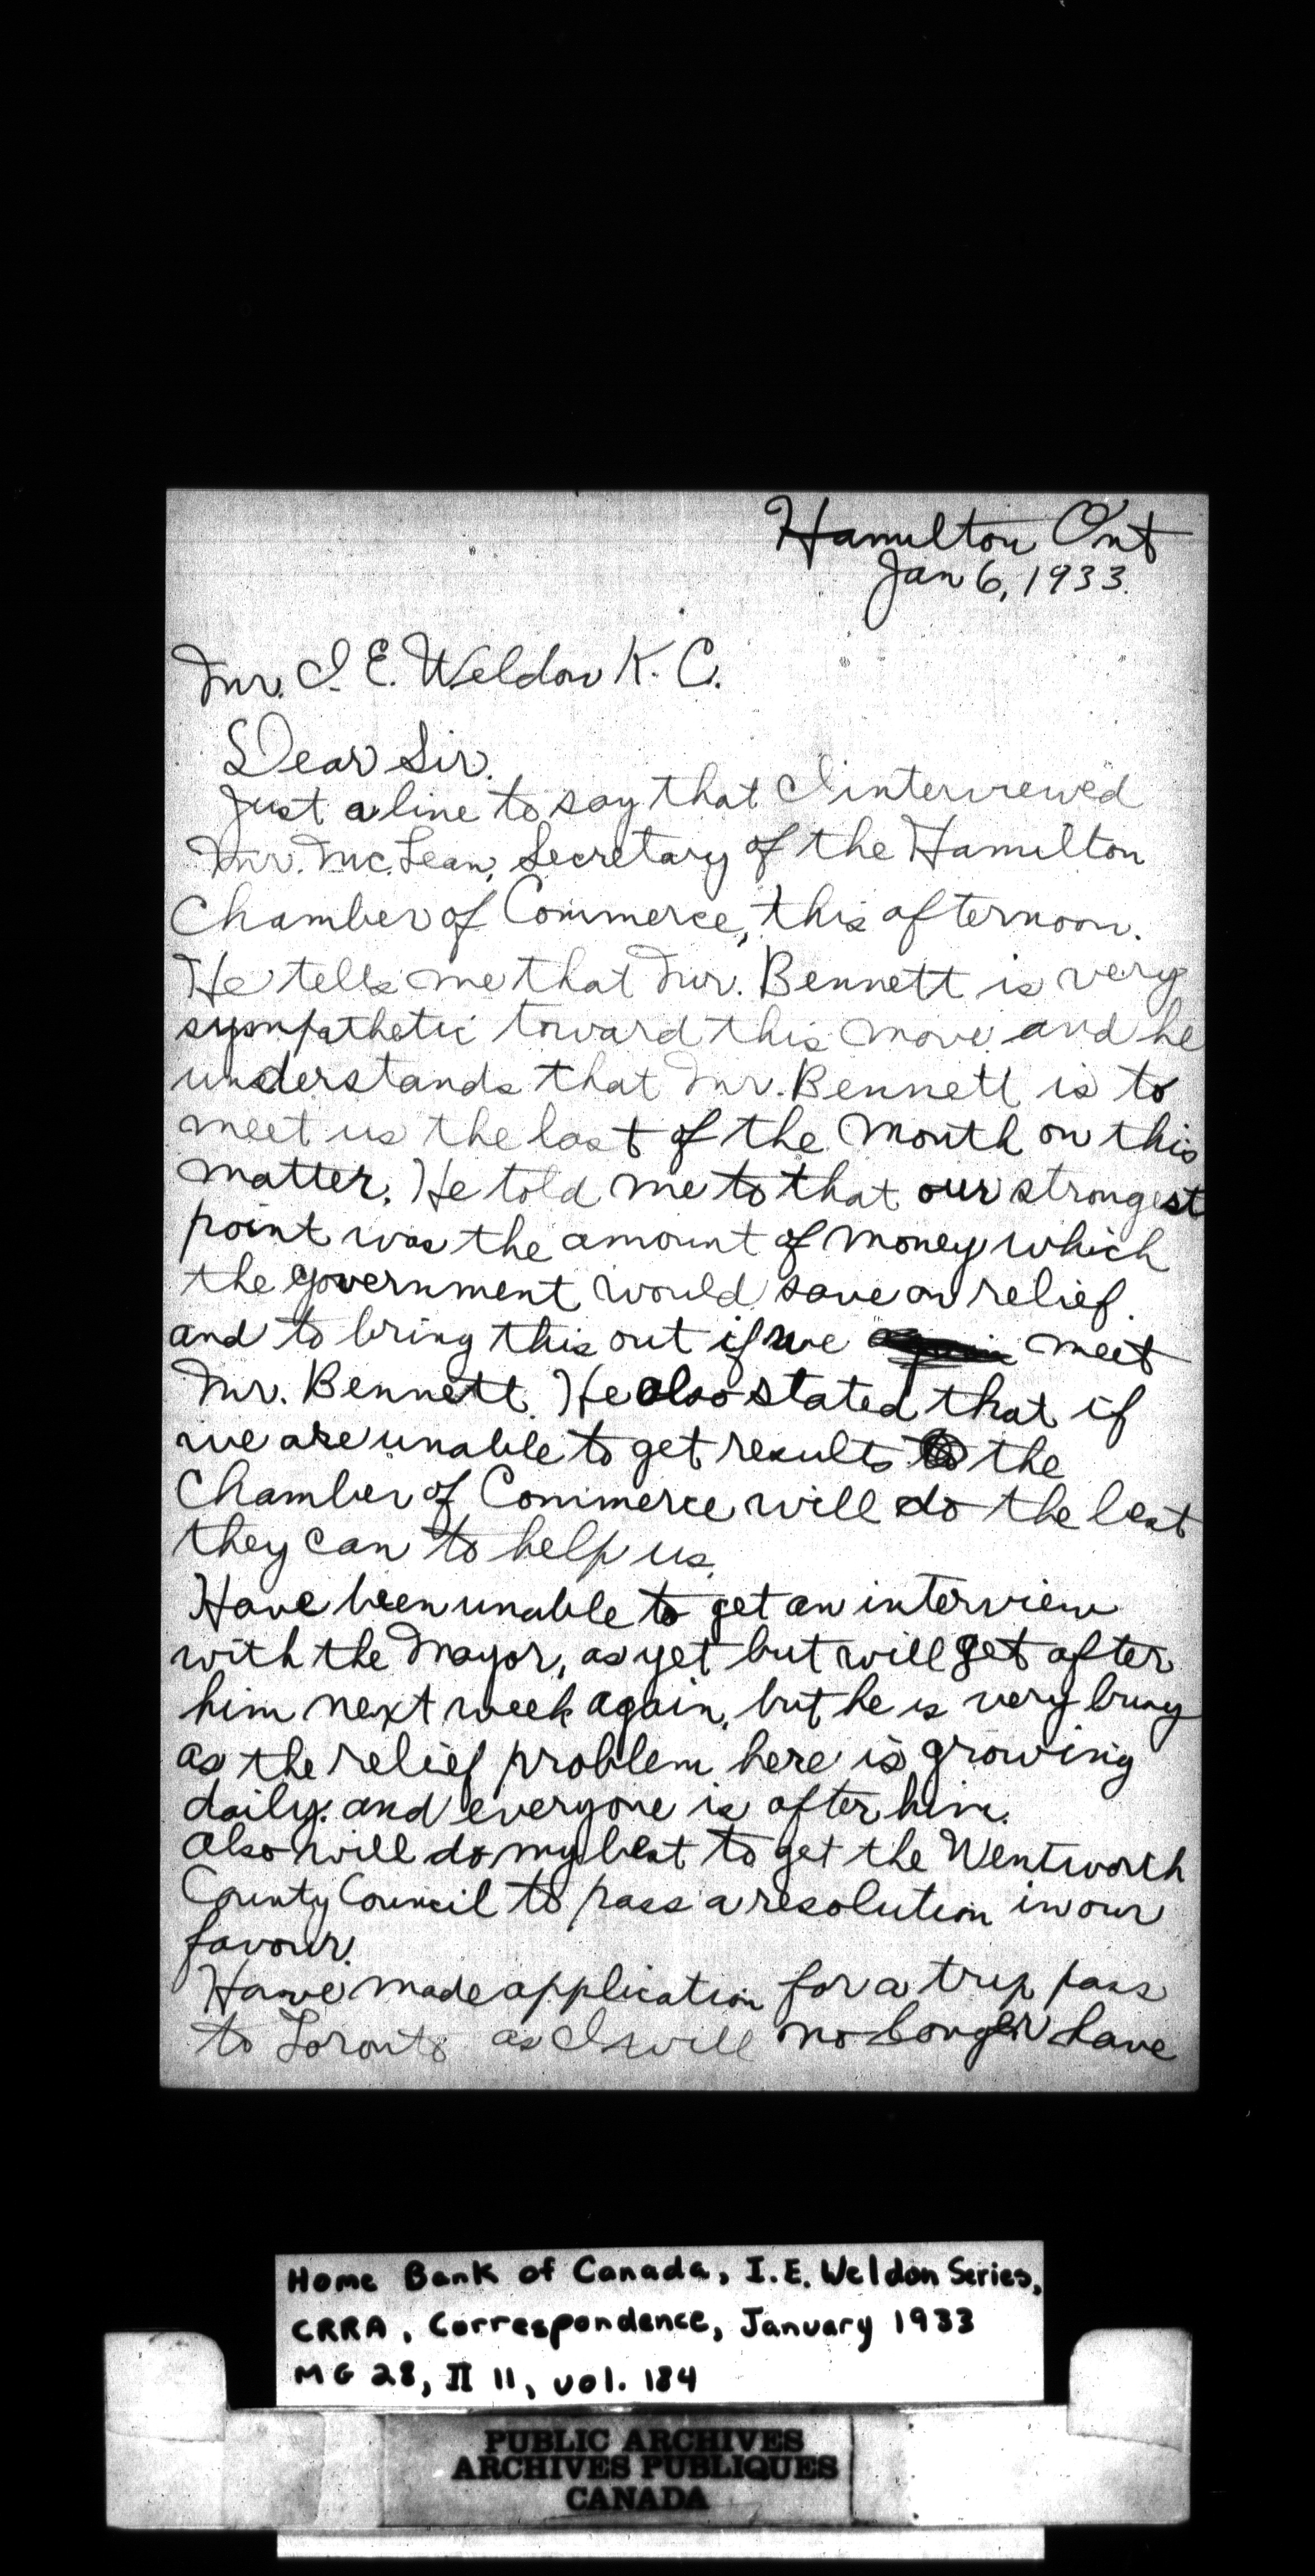 Hamilton Ont
Jan 6, 1933.
Mr. I. E. Weldon K. C.
Dear Sir.
Just a line to say that I interviewed
Mr. McLean, Secretary of the Hamilton
Chamber of Commerce, this afternoon.
He tells me that Mr. Bennett is very
sympathetic toward this move and he
understands that Mr. Bennett is to
meet us the last of the month on this
matter. He told me to that our strongest
point was the amount of money which
the government would save on relief.
and to bring this out if we meet
Mr. Bennett. He also stated that if
we are unable to get results the
Chamber of Commerce will do the best
they can to help us.
Have been unable to get an interview
with the Mayor, as yet but will get after
him next week again, but he is very busy
as the relief problem here is growing
daily. and everyone is after him.
Also will do my best to get the Wentworth
County Council to pass a resolution in our
favour.
Have made application for a trip pass
to Toronto as I will no longer have
Home Bank of Canada, I.E. Weldon Series,
CRRA, Correspondence, January 1933
MG 28, II 11, vol. 184
PUBLIC ARCHIVES
ARCHIVES PUBLIQUES
CANADA